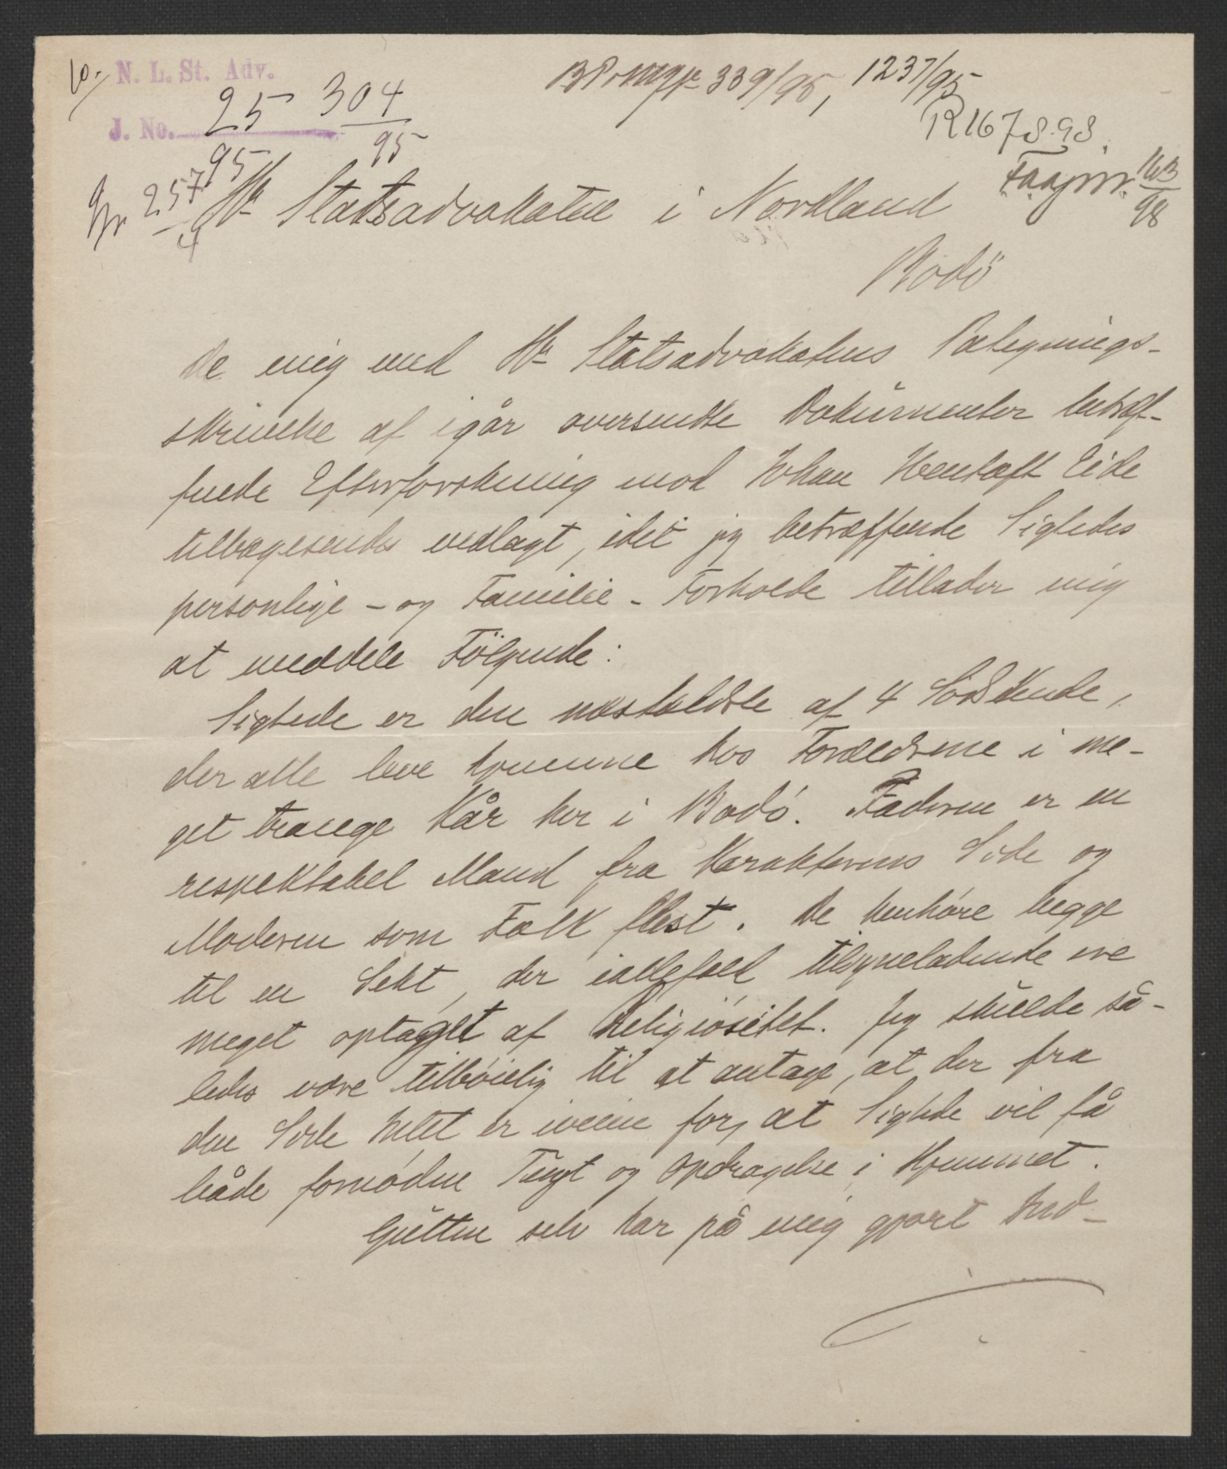 N. L. St. Adv.
J. No. 25 304
95 95
339/95, 1237/95
R 1678.98.
257
4
163
98
Hr Statsadvokaten i Nordland
Bodö
De mig med Hr Statsadvokatens Paategnings-
skrivelse af igår oversendte Dokumenter betræf-
fende Efterforskning mod Johan Eide
tilbagesendes vedlagt, idet jeg betræffende Sigtedes
personlige - og Familie - Forholde tillader mig
at meddele Fölgende:
Sigtede er den næstældste af 4 Södskende,
der alle leve hjemme hos Forældrene i me-
get trange Kår her i Bodö. Faderen er en
respektabel Mand fra Karakterens Side og
Moderen som Folk flest. De henhöre begge
til en Sekt, der iallefald tilsyneladende ere
meget optaget af Religiösitet. Jeg skulde så-
ledes være tilböielig til at antage, at der fra
den Side Intet er iveien for, at Sigtede vil få
både fornöden Tugt og Opdragelse i Hjemmet.
Gutten selv har på mig gjort Ind-